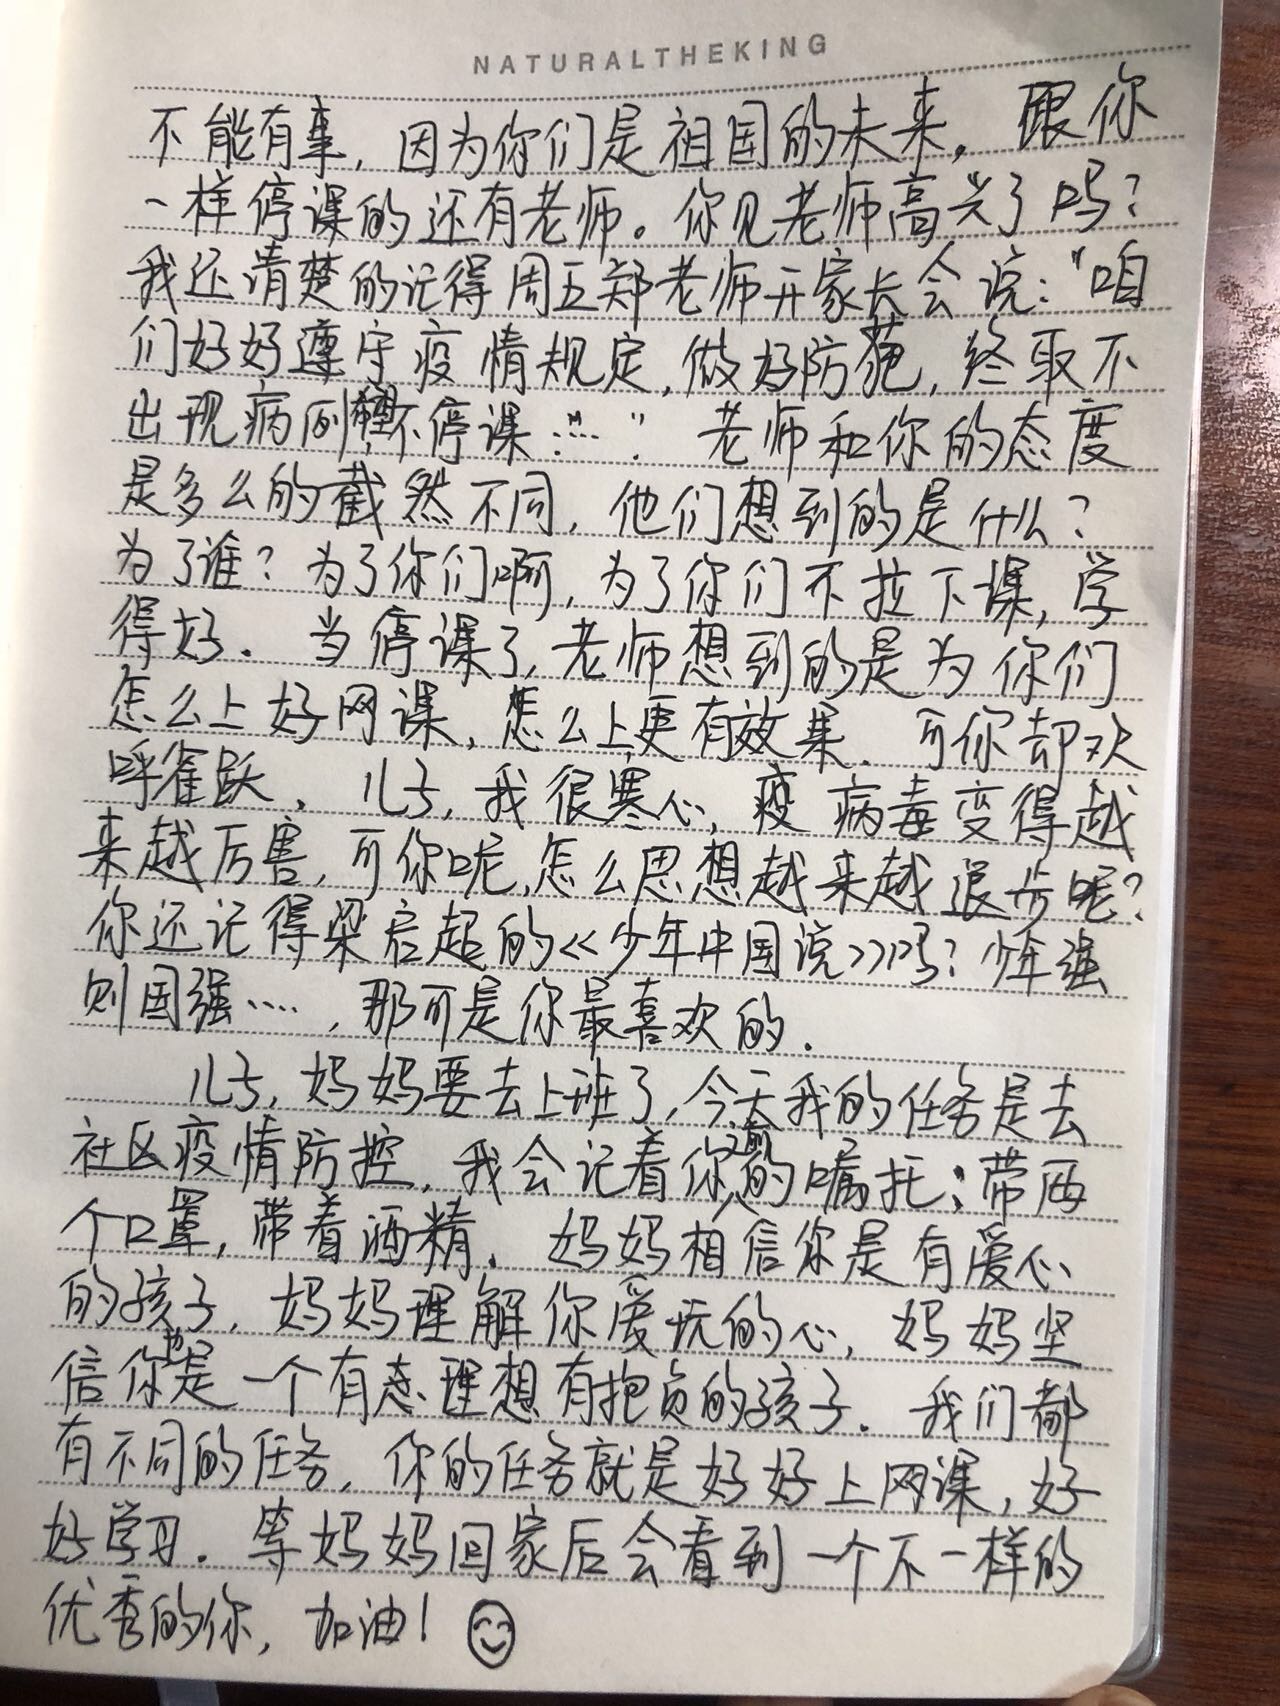 NATURALTHEKING
不能有事，因为你们是祖国的未来。跟你
一样停课的还有老师。你见老师高兴了吗？
我还清楚的记得周五郑老师开家长会说：“咱
们好好遵守疫情规定，做好防范，终取不
出现病例，不停课……”老师和你的态度
是多么的截然不同，他们想到的是什么？
为了谁？为了你们啊，为了你们不拉下课，学
得好。当停课了，老师想到的是为你们
怎么上好网课，怎么上更有效果。可你却欢
呼雀跃，儿子，我很寒心，疫病毒变得越
来越厉害，可你呢，怎么思想越来越退步呢？
你还记得梁启超的《少年中国说》吗？少年强
则国强……，那可是你最喜欢的。
儿子，妈妈要去上班了，今天我的任务是去
社区疫情防控，我会记着你之前的嘱托：带两
个口罩，带着酒精。妈妈相信你是有爱心
的孩子，妈妈理解你爱玩的心，妈妈坚
信你也是一个有理想有抱负的孩子。我们都
有不同的任务，你的任务就是好好上网课，好
好学习。等妈妈回家后会看到一个不一样的
优秀的你，加油！